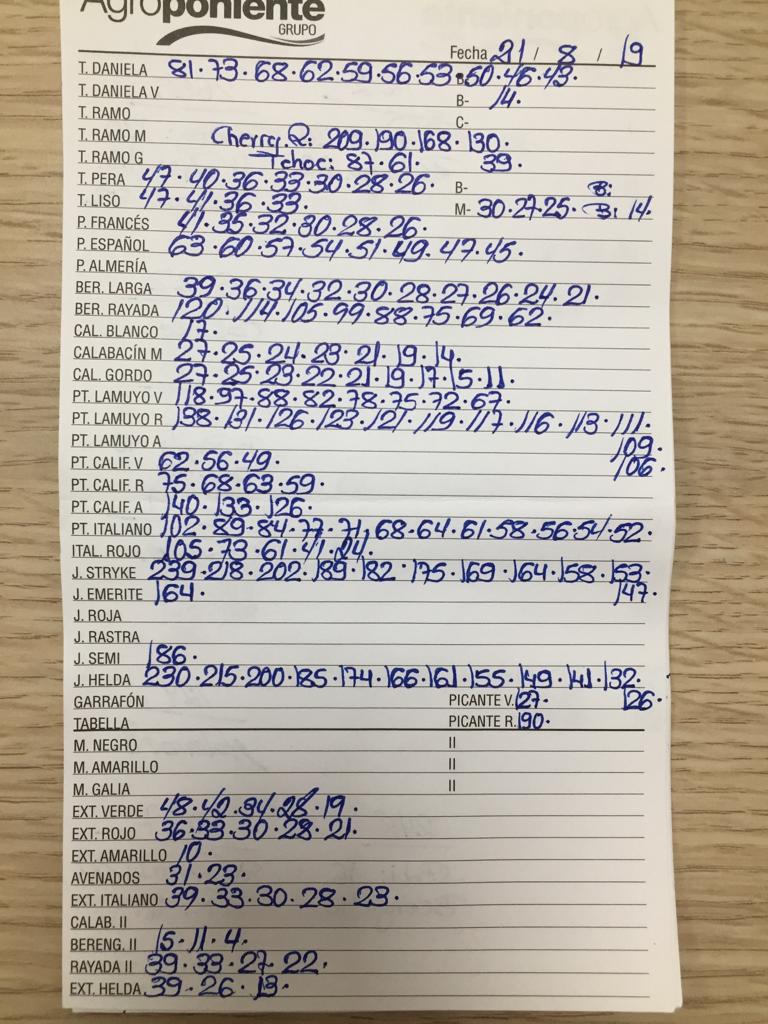 Agroponiente
GRUPO
Fecha 21 / 8 / 19
T. DANIELA 81·73·68·62·59·56·53·50·46·43·
T. DANIELA V B- 14·
T. RAMO C-
T. RAMO M Cherry R: 209·190·168·130·
T. RAMO G Tchoc: 87·61· 39·
T. PERA 47·40·36·33·30·28·26· B- B:
T. LISO 47·41·36·33· M- 30·27·25· B: 14·
P. FRANCÉS 41·35·32·30·28·26·
P. ESPAÑOL 63·60·57·54·51·49·47·45·
P. ALMERÍA
BER. LARGA 39·36·34·32·30·28·27·26·24·21·
BER. RAYADA 120·114·105·99·88·75·69·62·
CAL. BLANCO 17·
CALABACÍN M 27·25·24·23·21·19·14·
CAL. GORDO 27·25·23·22·21·19·17·15·11·
PT. LAMUYO V 118·97·88·82·78·75·72·67·
PT. LAMUYO R 138·131·126·123·121·119·117·116·113·111·
PT. LAMUYO A 109·
PT. CALIF. V 62·56·49· 106·
PT. CALIF. R 75·68·63·59·
PT. CALIF. A 140·133·126·
PT. ITALIANO 102·89·84·77·71,68·64·61·58·56·54·52·
ITAL. ROJO 105·73·61·41·24·
J. STRYKE 239·218·202·189·182·175·169·164·158·153·
J. EMERITE 164· 147·
J. ROJA
J. RASTRA
J. SEMI 186·
J. HELDA 230·215·200·185·174·166·161·155·149·141·132·
GARRAFÓN PICANTE V. 127· 126·
TABELLA PICANTE R. 190·
M. NEGRO II
M. AMARILLO II
M. GALIA II
EXT. VERDE 48·42·34·28·19·
EXT. ROJO 36·33·30·28·21·
EXT. AMARILLO 10·
AVENADOS 31·23·
EXT. ITALIANO 39·33·30·28·23·
CALAB. II
BERENG. II 15·11·4·
RAYADA II 39·33·27·22·
EXT. HELDA 39·26·13·